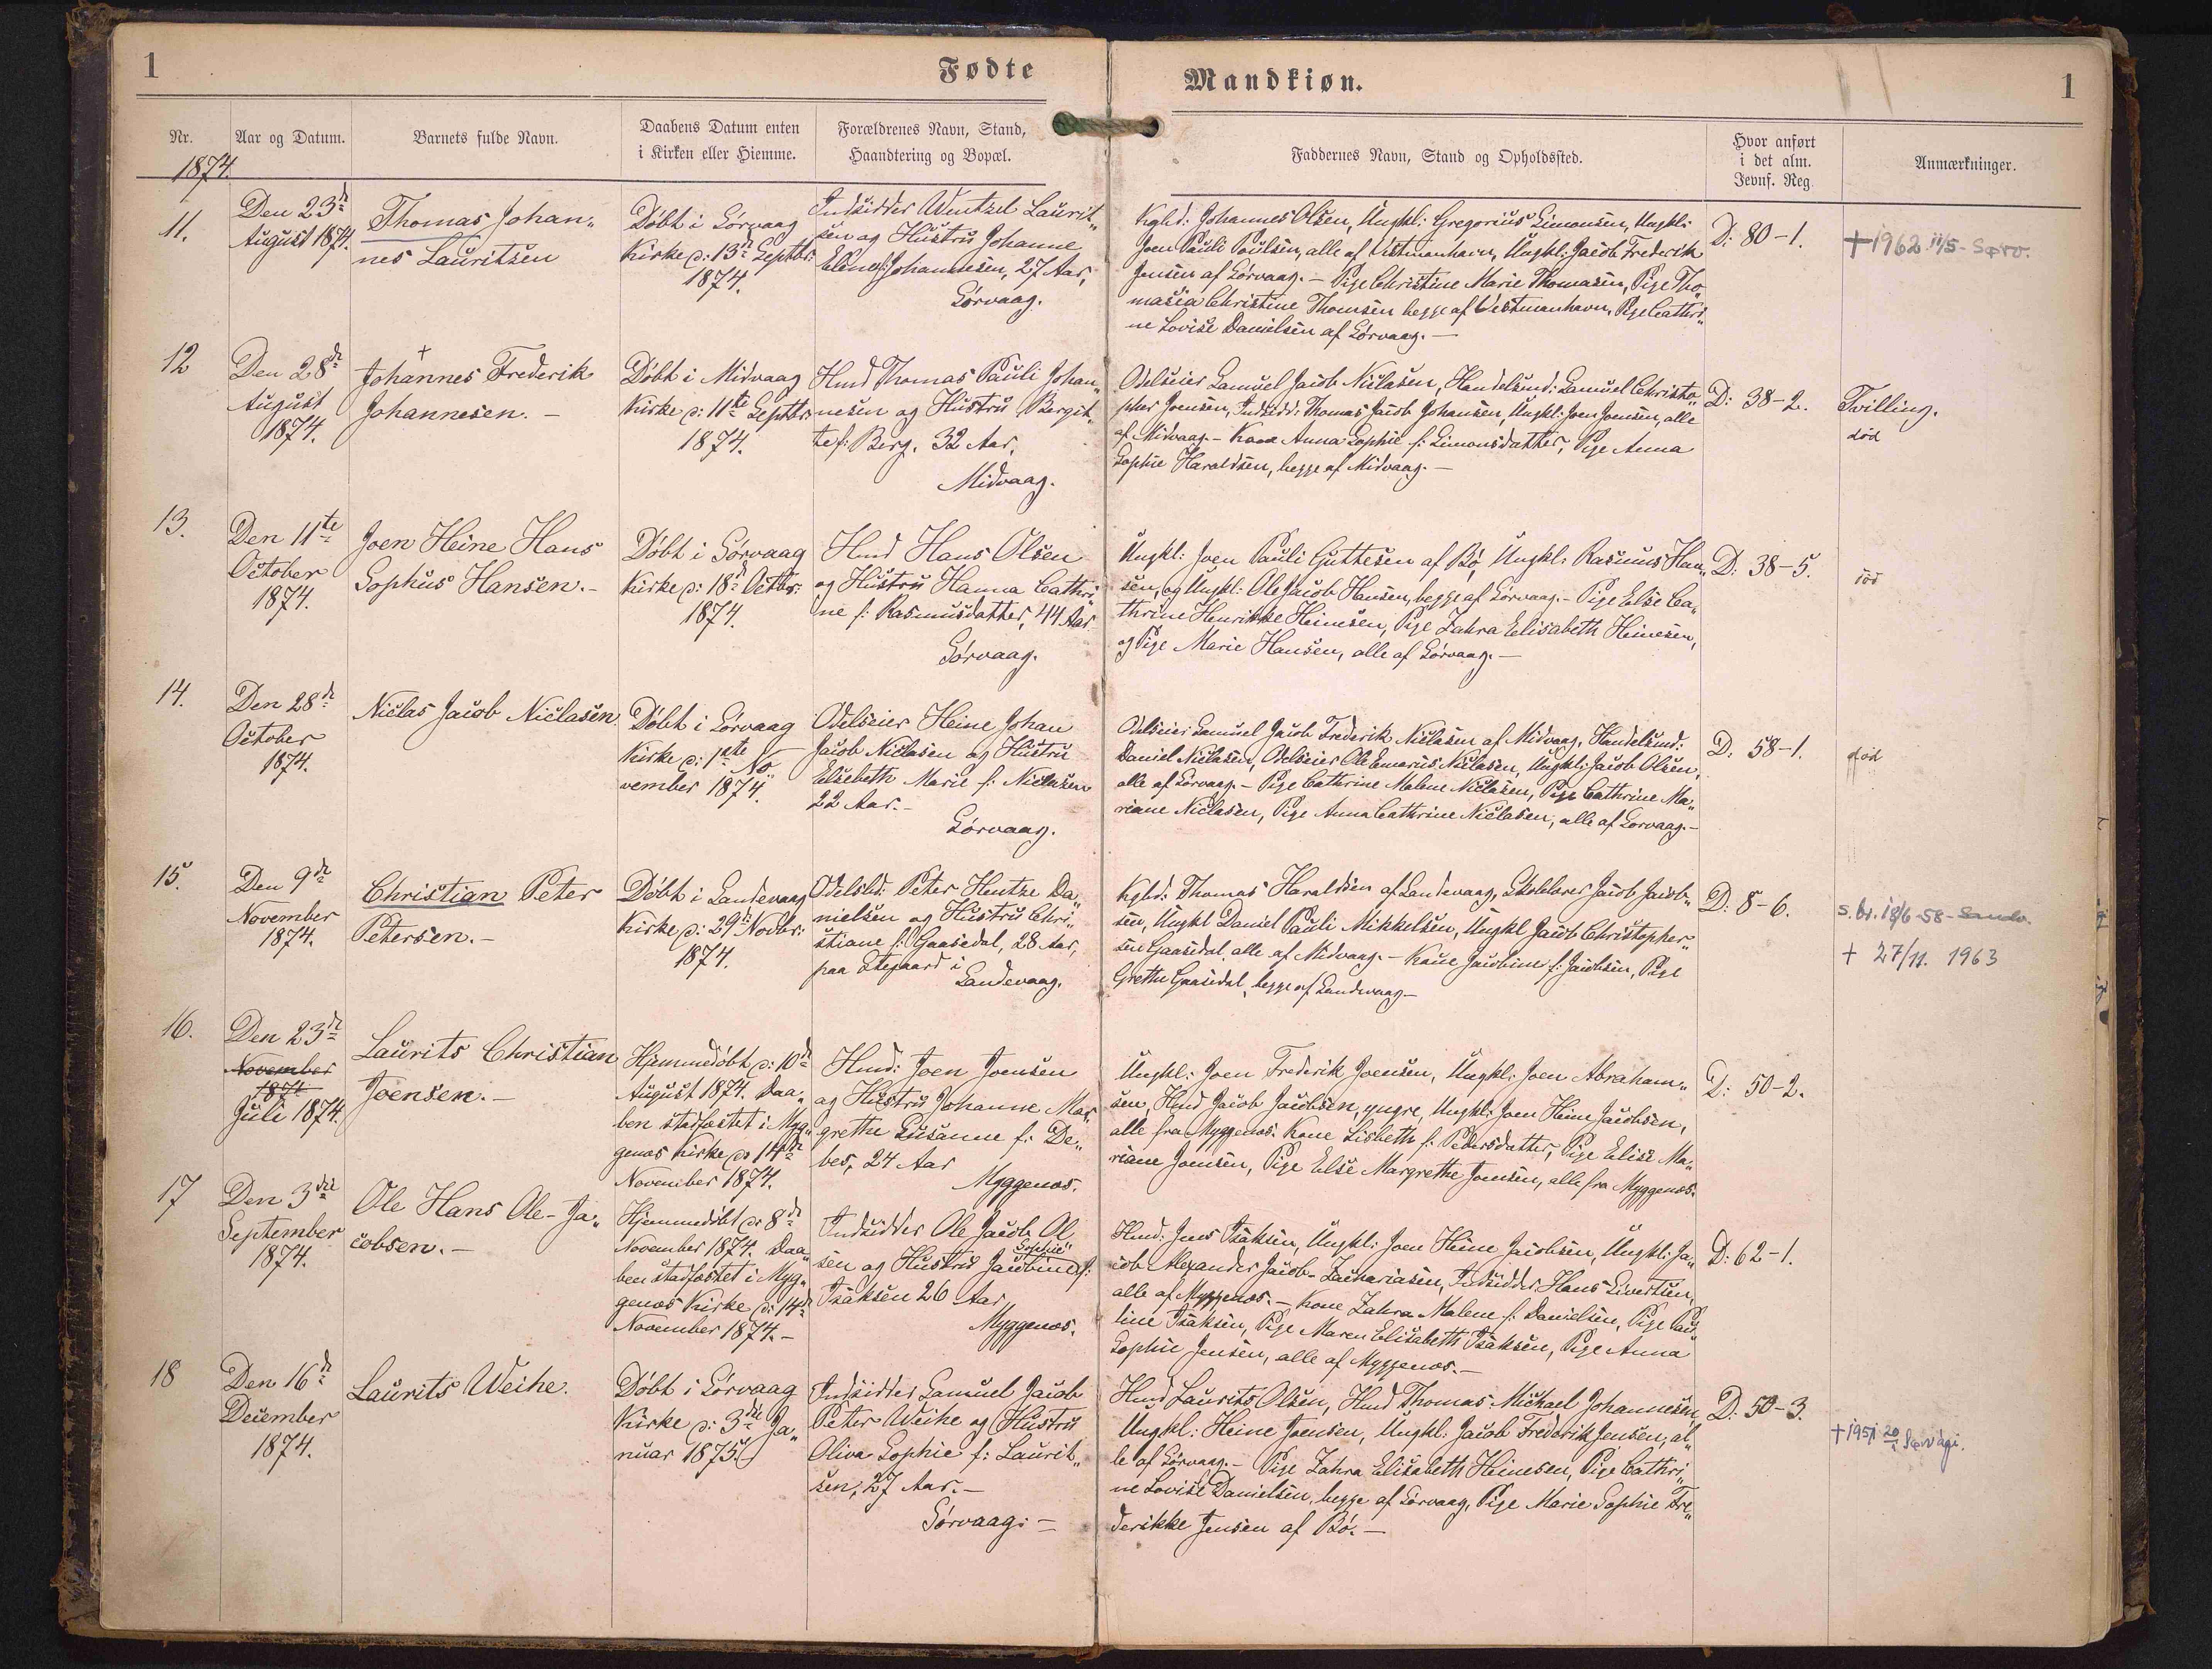 1
Fødte
Mandkiøn.
1
Nr.
Aar og Datum.
Barnets fulde Navn.
Daabens Datum enten
i Kirken eller Hiemme.
Forældrenes Navn, Stand,
Haandtering og Bopæl.
Faddernes Navn, Stand og Opholdssted.
Hvor anført
i det alm.
Jevnf. Reg.
Anmærkninger.
1874.
11.
Den 23d
August 1874.
Thomas Johan„
nes Lauritsen
Döbt i Sörvaag
Kirke d: 13d Septbr:
1874.
Indsidder Wentzel Laurit„
sen og Hustru Johanne
Elene f: Johannesen, 27 Aar,
Sörvaag.
Kgbd: Johannes Olsen, Ungkl: Gregorius Simonsen, Ungkl:
Joen Pauli Poulsen, alle af Vestmanhavn, Ungkl: Jacob Frederik
Jensen af Sörvaag. – Pige Christine Marie Thomasen, Pige Tho„
masia Christine Thomsen begge af Vestmanhavn, Pige Cathri„
ne Lovise Danielsen af Sörvaag. —
D: 80–1.
+1962 11/5 - Sørv.
12
Den 28d
August
1874.
+
Johannes Frederik
Johannesen. –
Döbt i Midvaag
Kirke d: 11te Septbr:
1874.
Hmd Thomas Pauli Johan„
nesen og Hustru Bergit„
te f: Berg, 32 Aar,
Midvaag.
Odelseier Samuel Jacob Niclasen, Handelsmd: Samuel Christo„
pher Joensen, Indsidd: Thomas Jacob Johansen, Ungkl: Joen Joensen, alle
af Midvaag. – Kone Anna Sophie f: Simonsdatter, Pige Anna
Sophie Haraldsen, begge af Midvaag. —
D: 38–2.
Tvilling.
död
13.
Den 11te
October
1874.
Joen Heine Hans
Sophus Hansen. –
Döbt i Sörvaag
Kirke d: 18d Octbr:
1874.
Hmd Hans Olsen
og Hustru Hanna Cathri„
ne f: Rasmusdatter, 44 Aar
Sörvaag.
Ungkl: Joen Pauli Guttesen af Bö, Ungkl: Rasmus Han„
sen, og Ungkl: Ole Jacob Hansen, begge af Sörvaag. – Pige Else Ca„
thrine Henrikke Heinesen, Pige Zahra Elisabeth Heinesen,
og Pige Marie Hansen, alle af Sörvaag. —
D: 38–5.
död
14.
Den 28d
October
1874.
Niclas Jacob Niclasen
Döbt i Sörvaag
Kirke d: 1ste No„
vember 1874.
Odelseier Heine Johan
Jacob Niclasen og Hustru
Elsebeth Marie f: Niclasen
22 Aar. –
Sörvaag.
Odelseier Samuel Jacob Frederik Niclasen af Midvaag, Handelsmd:
Daniel Niclasen, Odelseier Ole Enarius Niclasen, Ungkl: Jacob Olsen,
alle af Sörvaag. – Pige Cathrine Malene Niclasen, Pige Cathrine Ma„
riane Niclasen, Pige Anna Cathrine Niclasen, alle af Sorvaag. –
D: 58–1.
död
15.
Den 9de
November
1874.
Christian Peter
Petersen. –
Döbt i Sandevaag
Kirke d: 29d Novbr:
1874.
Odelsbd: Peter Hentze Da„
nielsen og Hustru Chri„
stiane f: Gaasedal, 28 Aar,
paa Stegaard i
Sandevaag.
Kgbd: Thomas Haraldsen af Sandevaag, Skolelærer Jacob Jacob„
sen, Ungkl Daniel Pauli Mikkelsen, Ungkl Jacob Christopher„
sen Gaasedal, alle af Midvaag. – Kone Jacobine f: Jacobsen, Pige
Grethe Gaasedal, begge af Sandevaag –
D: 8–6.
s. br. 18/6-58 - Sandv.
+ 27/11. 1963
16.
Den 23de
November
1874
Juli 1874.
Laurits Christian
Joensen. –
Hjemmedöbt d: 10d
August 1874. Daa„
ben stadfæstet i Myg„
genæs Kirke d: 14de
November 1874.
Hmd: Joen Joensen
og Hustru Johanne Mar„
grethe Susanne f: De„
bes, 24 Aar
Myggenæs.
Ungkl: Joen Frederik Joensen, Ungkl: Joen Abraham„
sen, Hmd Jacob Jacobsen, yngre, Ungkl: Joen Heine Jacobsen,
alle fra Myggenæs. Kone Lisbeth f: Pedersdatter, Pige Elise Ma„
riane Joensen, Pige Else Margrethe Joensen, alle fra Myggenæs.
D: 50–2.
17
Den 3die
September
1874.
Ole Hans Ole-Ja„
cobsen. –
Hjemmedöbt d: 8de
November 1874. Daa„
ben stadfæstet i Myg„
genæs Kirke d: 14d
November 1874. –
Indsidder Ole Jacob Ol„
sen og Hustru Jacobine Sophie f:
Isaksen 26 Aar
Myggenæs.
Hmd: Jens Isaksen, Ungkl: Joen Heine Jacobsen, Ungkl: Ja„
cob Alexander Jacob-Zachariasen, Indsidder Hans Sivertsen,
alle af Myggenæs. – Kone Zahra Malene f: Danielsen, Pige Pau„
line Isaksen, Pige Maren Elisabeth Isaksen, Pige Anna
Sophie Jensen, alle af Myggenæs. –
D: 62–1.
18
Den 16d
December
1874.
Laurits Weihe.
Döbt i Sörvaag
Kirke d: 3die Ja„
nuar 1875.
Indsidder Samuel Jacob
Peter Weihe og Hustru
Oliva Sophie f: Laurit„
sen, 27 Aar. –
Sörvaag: –
Hmd Laurits Olsen, Hmd Thomas Michael Johannesen,
Ungkl: Heine Joensen, Ungkl: Jacob Frederik Jensen, al„
le af Sörvaag. – Pige Zahra Elisabeth Heinesen, Pige Cathri„
ne Lovise Danielsen, begge af Sörvaag, Pige Marie Sophie Fre„
derikke Jensen af Bö. —
D: 50–3.
+1951 Sørvági.